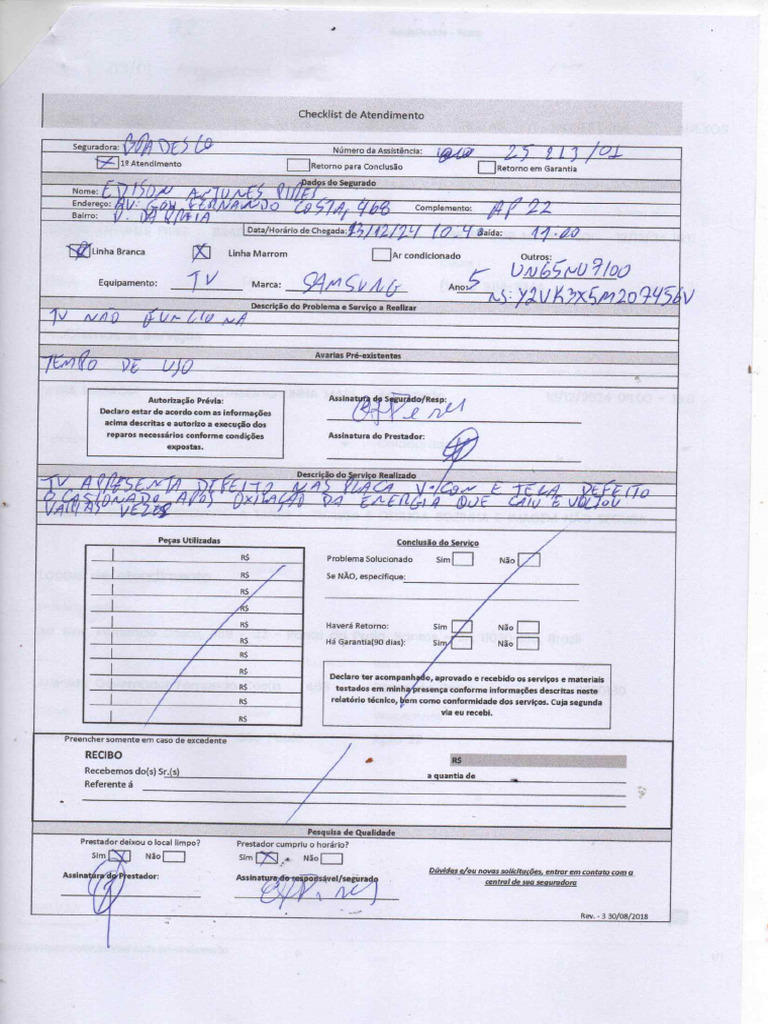 Checklist de Atendimento
Seguradora: BRADESCO Número da Assistência: 25 213/01
1º Atendimento Retorno para Conclusão Retorno em Garantia
Dados do Segurado
Nome: EDISON ANTUNES PIRES
Endereço: AV: GOV FERNANDO COSTA, 468 Complemento: AP 22
Bairro: P. DA PRAIA
Data/Horário de Chegada: 13/12/24 10.40 Saída: 11.00
Linha Branca Linha Marrom Ar condicionado Outros: UN65NU7100
Equipamento: TV Marca: SAMSUNG Ano: 5 NS: Y2VK3X5M207456V
Descrição do Problema e Serviço a Realizar
TV NÃO FUNCIONA
Avarias Pré-existentes
TEMPO DE USO
Autorização Prévia:
Declaro estar de acordo com as informações
acima descritas e autorizo a execução dos
reparos necessários conforme condições
expostas.
Assinatura do Segurado/Resp:
Assinatura do Prestador:
Descrição do Serviço Realizado
TV APRESENTA DEFEITO NAS PLACA V-CON E TELA DEFEITO
OCASIONADO APÓS OXILAÇÃO DA ENERGIA QUE CAIU E VOLTOU
VARIAS VEZES
Peças Utilizadas
R$
R$
R$
R$
R$
R$
R$
R$
R$
R$
R$
Conclusão do Serviço
Problema Solucionado Sim Não
Se NÃO, especifique:
Haverá Retorno: Sim Não
Há Garantia(90 dias): Sim Não
Declaro ter acompanhado, aprovado e recebido os serviços e materiais
testados em minha presença conforme informações descritas neste
relatório técnico, bem como conformidade dos serviços. Cuja segunda
via eu recebi.
Preencher somente em caso de excedente
RECIBO R$
Recebemos do(s) Sr.(s) a quantia de
Referente á
Pesquisa de Qualidade
Prestador deixou o local limpo? Prestador cumpriu o horário?
Sim Não Sim Não
Assinatura do Prestador: Assinatura do responsável/segurado
Dúvidas e/ou novas solicitações, entrar em contato com a
central de sua seguradora
Rev. - 3 30/08/2018